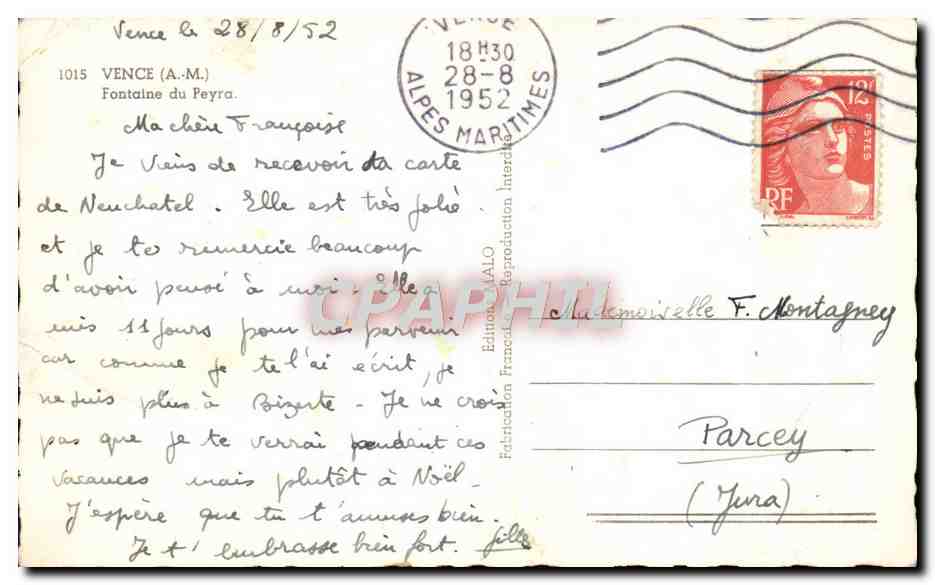 Vence le 28/8/52
1015 VENCE (A.-M.)
Fontaine du Peyra.
Ma chère Françoise
Je viens de recevoir ta carte
de Neuchatel. Elle est très jolie.
et je te remercie beaucoup
d'avoir pensé à moi. Elle a
mis 11 jours pour me parvenir
car comme je te l'ai écrit, je
ne suis plus à Bizerte - Je ne crois
pas que je te verrai pendant ces
vacances mais plutôt à Noël.
J'espère que tu t'amuses bien.
Je t'embrasse bien fort. Gille
VENCE
18H30
28-8
1952
ALPES MARITIMES
12F
POSTES
RF
Edition MALO
Fabrication Reproduction Interdite
CPAPHIL
Mademoiselle F. Montagney
Parcey
(Jura)